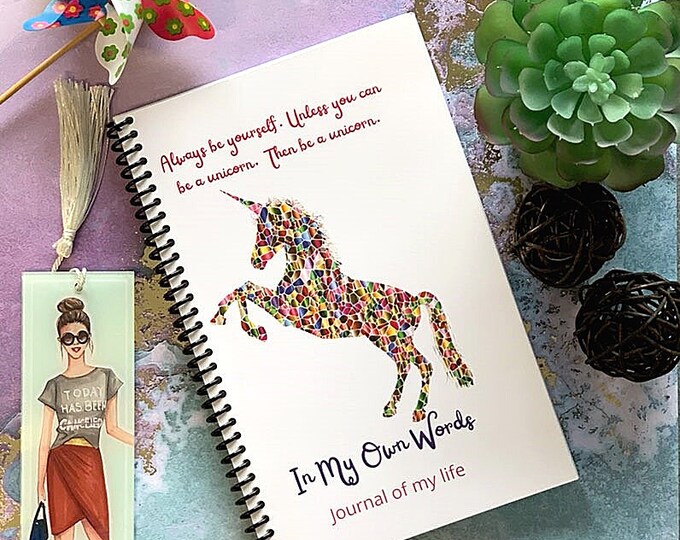 Always be yourself. Unless you can
be a unicorn. Then be a unicorn.
In My Own Words
Journal of my life
TODAY
HAS BEEN
CANCELED